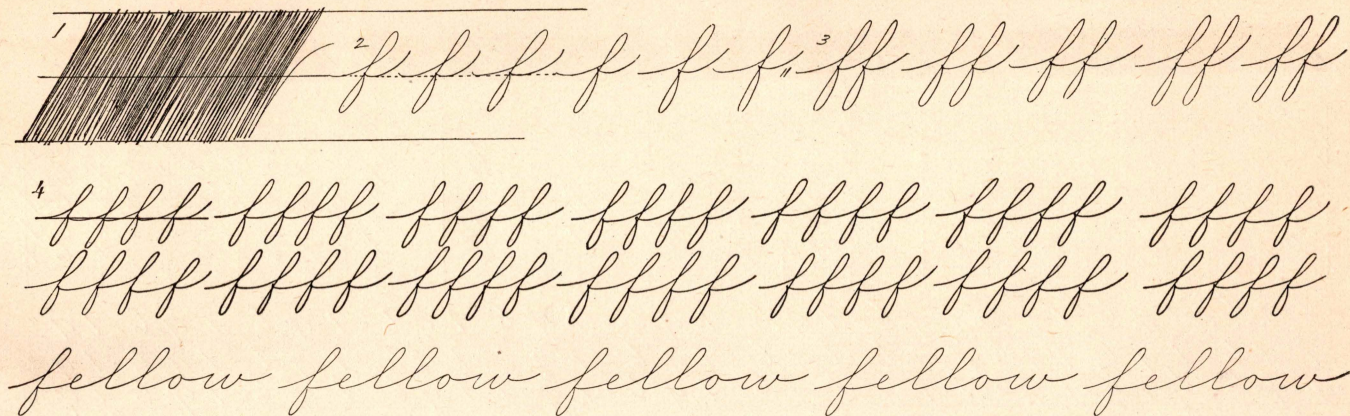 1 2 f f f f f f " 3 ff ff ff ff ff
4 ffff ffff ffff ffff ffff ffff ffff
ffff ffff ffff ffff ffff ffff ffff
fellow fellow fellow fellow fellow